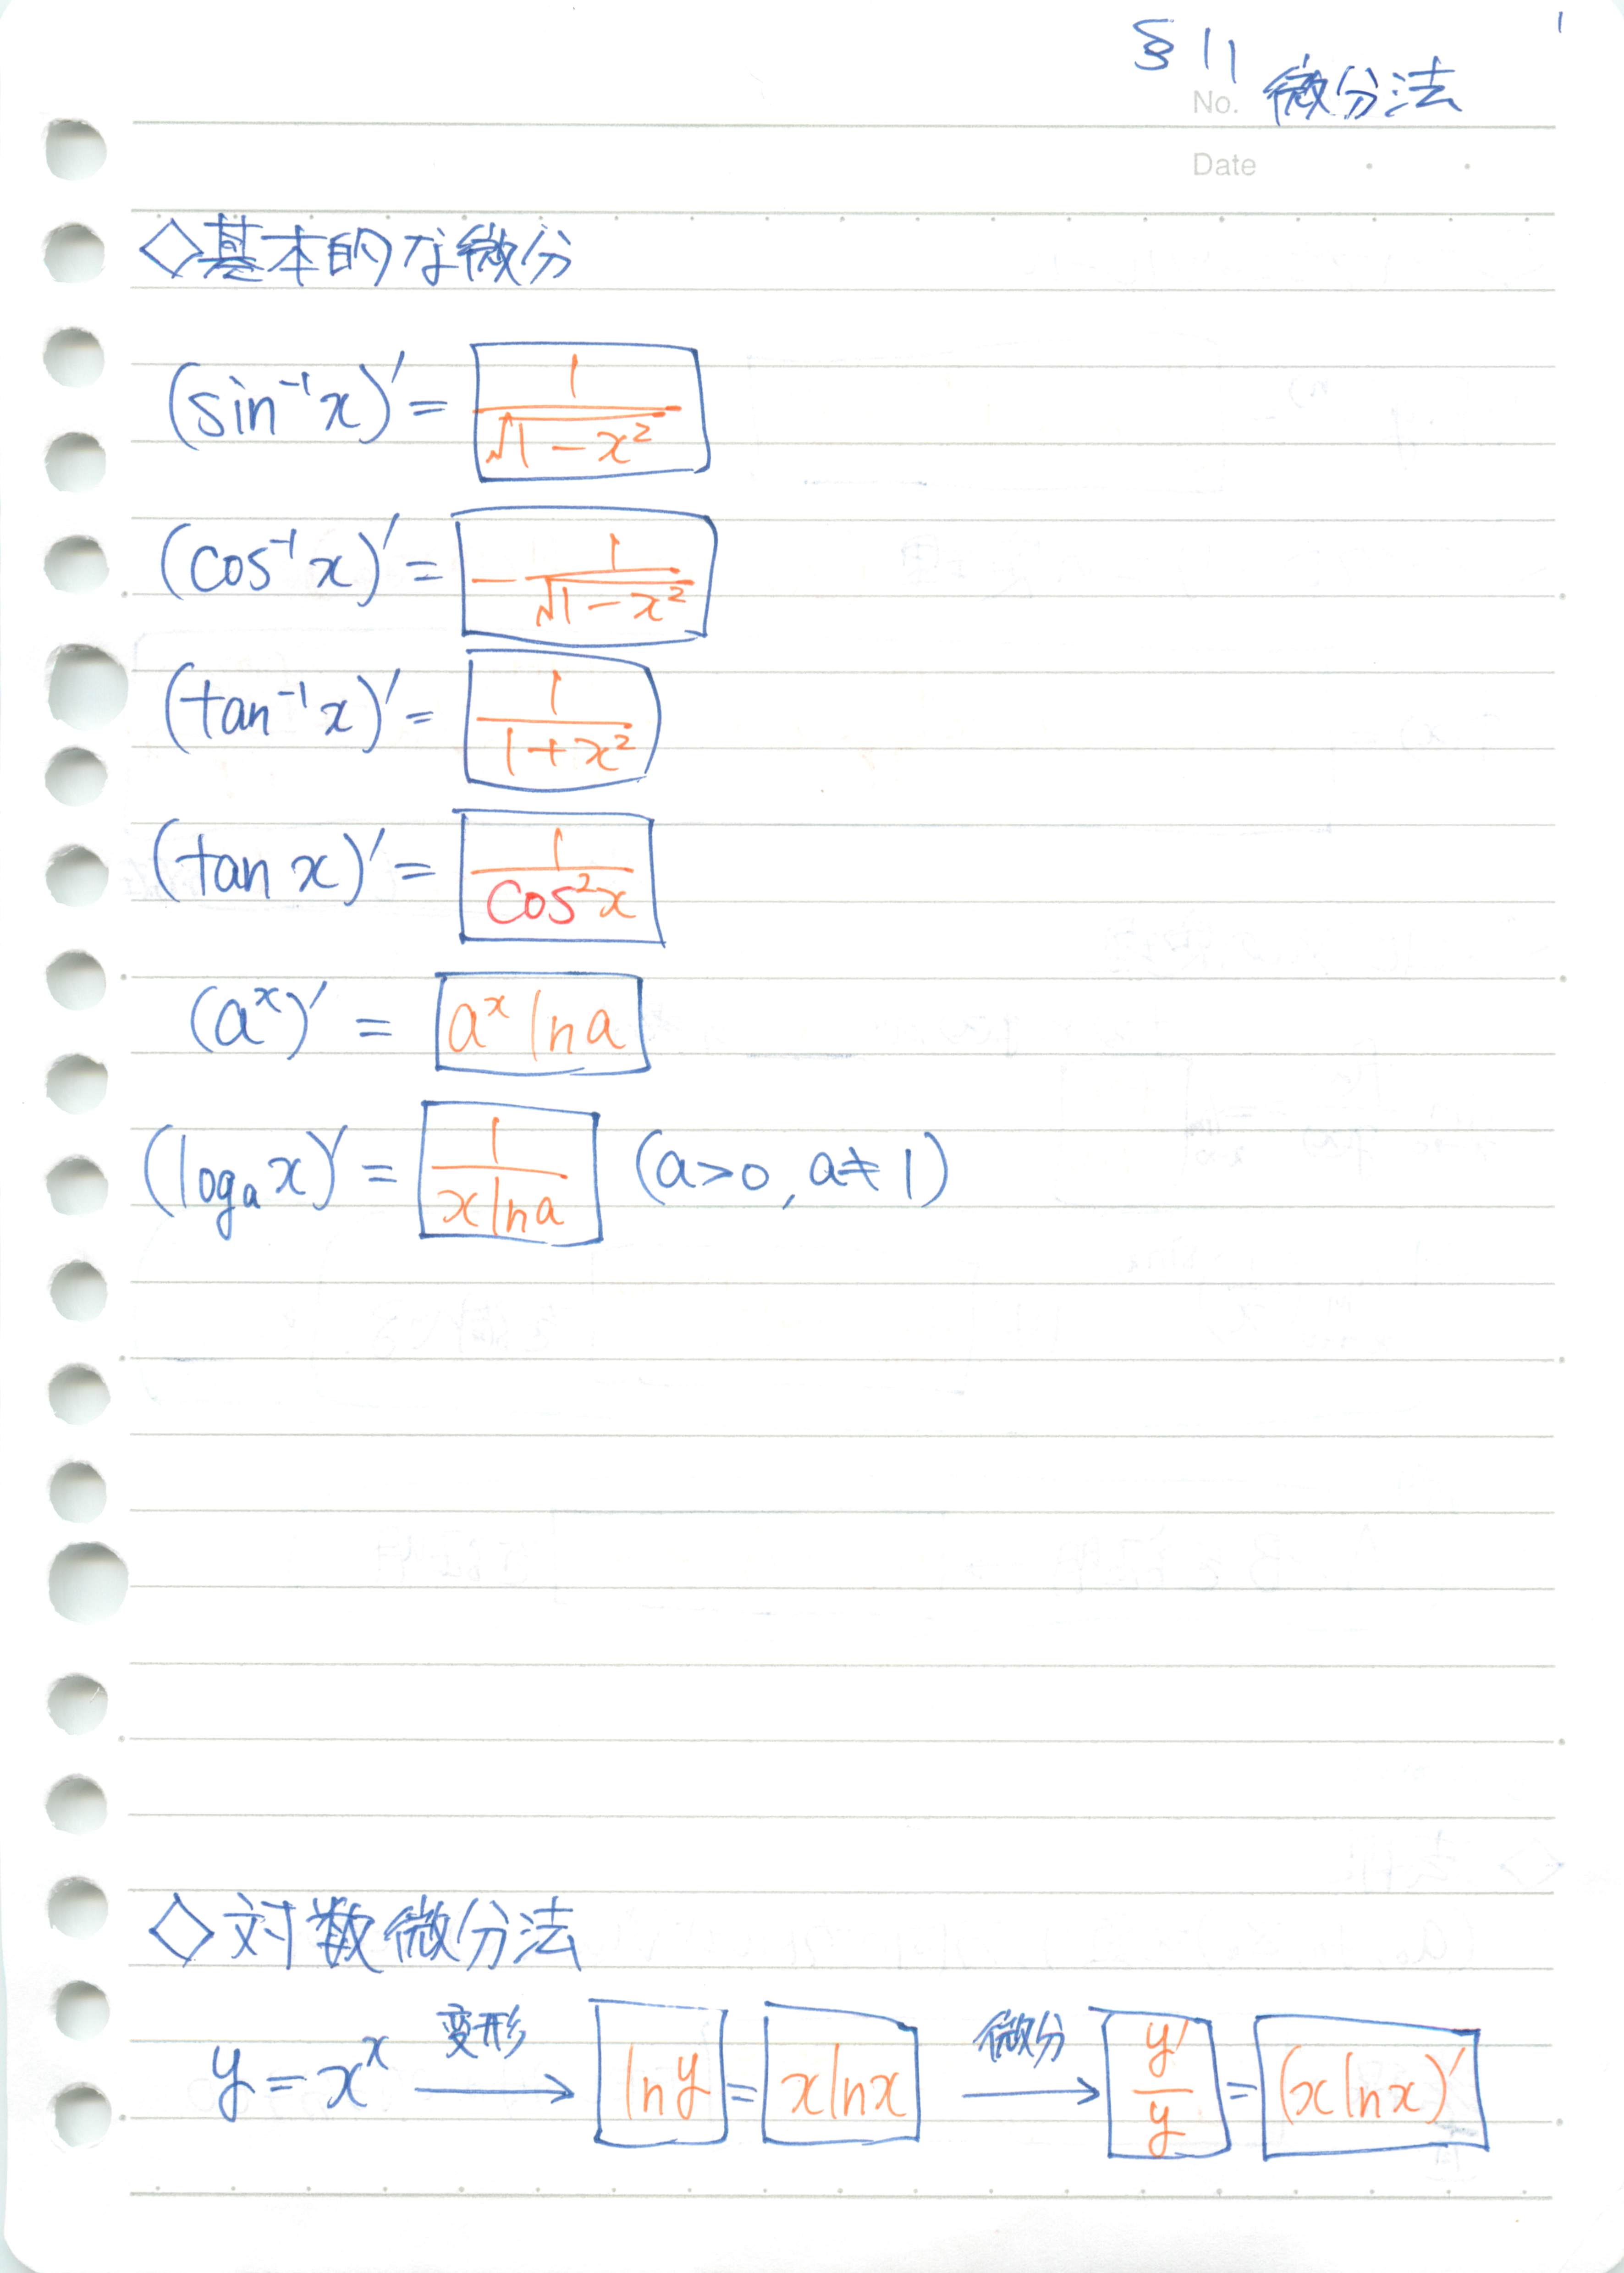 1
§11
No. 微分法
Date
◇基本的な微分
(sin⁻¹x)′ = 1/√(1−x²)
(cos⁻¹x)′ = −1/√(1−x²)
(tan⁻¹x)′ = 1/(1+x²)
(tan x)′ = 1/cos²x
(aˣ)′ = aˣ ln a
(logₐx)′ = 1/(x ln a) (a>0, a≠1)
◇対数微分法
y = xˣ 変形→ ln y = x ln x 微分→ y′/y = (x ln x)′